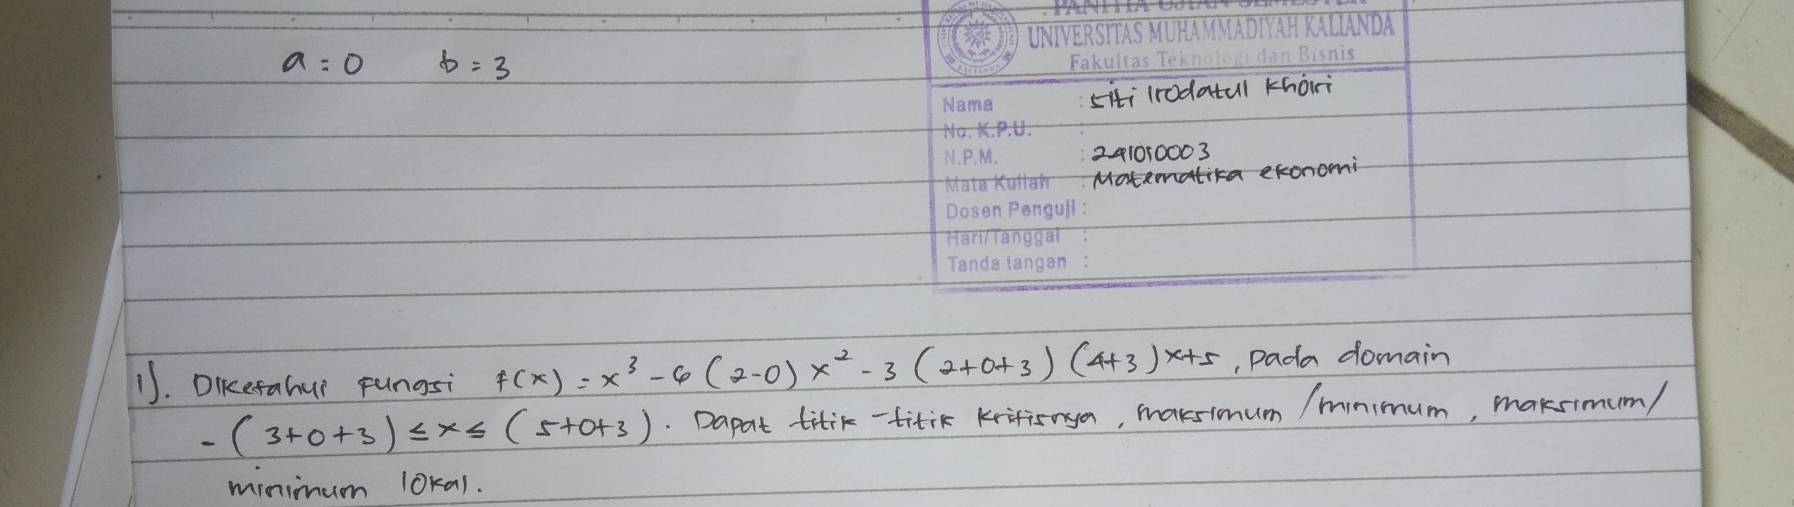 PANITIA UJIAN SEMESTER
UNIVERSITAS MUHAMMADIYAH KALIANDA
Fakultas Teknologi dan Bisnis
a = 0 b = 3
Nama : siti Irodatul Khoiri
No. K.P.U. :
N.P.M. : 241010003
Mata Kuliah : Matematika ekonomi
Dosen Penguji :
Hari/Tanggal :
Tanda tangan :
1). Diketahui fungsi f(x) = x³ - 6 (2-0) x² - 3 (2+0+3) (4+3) x+5, pada domain
- (3+0+3) ≤ x ≤ (5+0+3). Dapat titik-titik kritisnya, maksimum/minimum, maksimum/
minimum lokal.